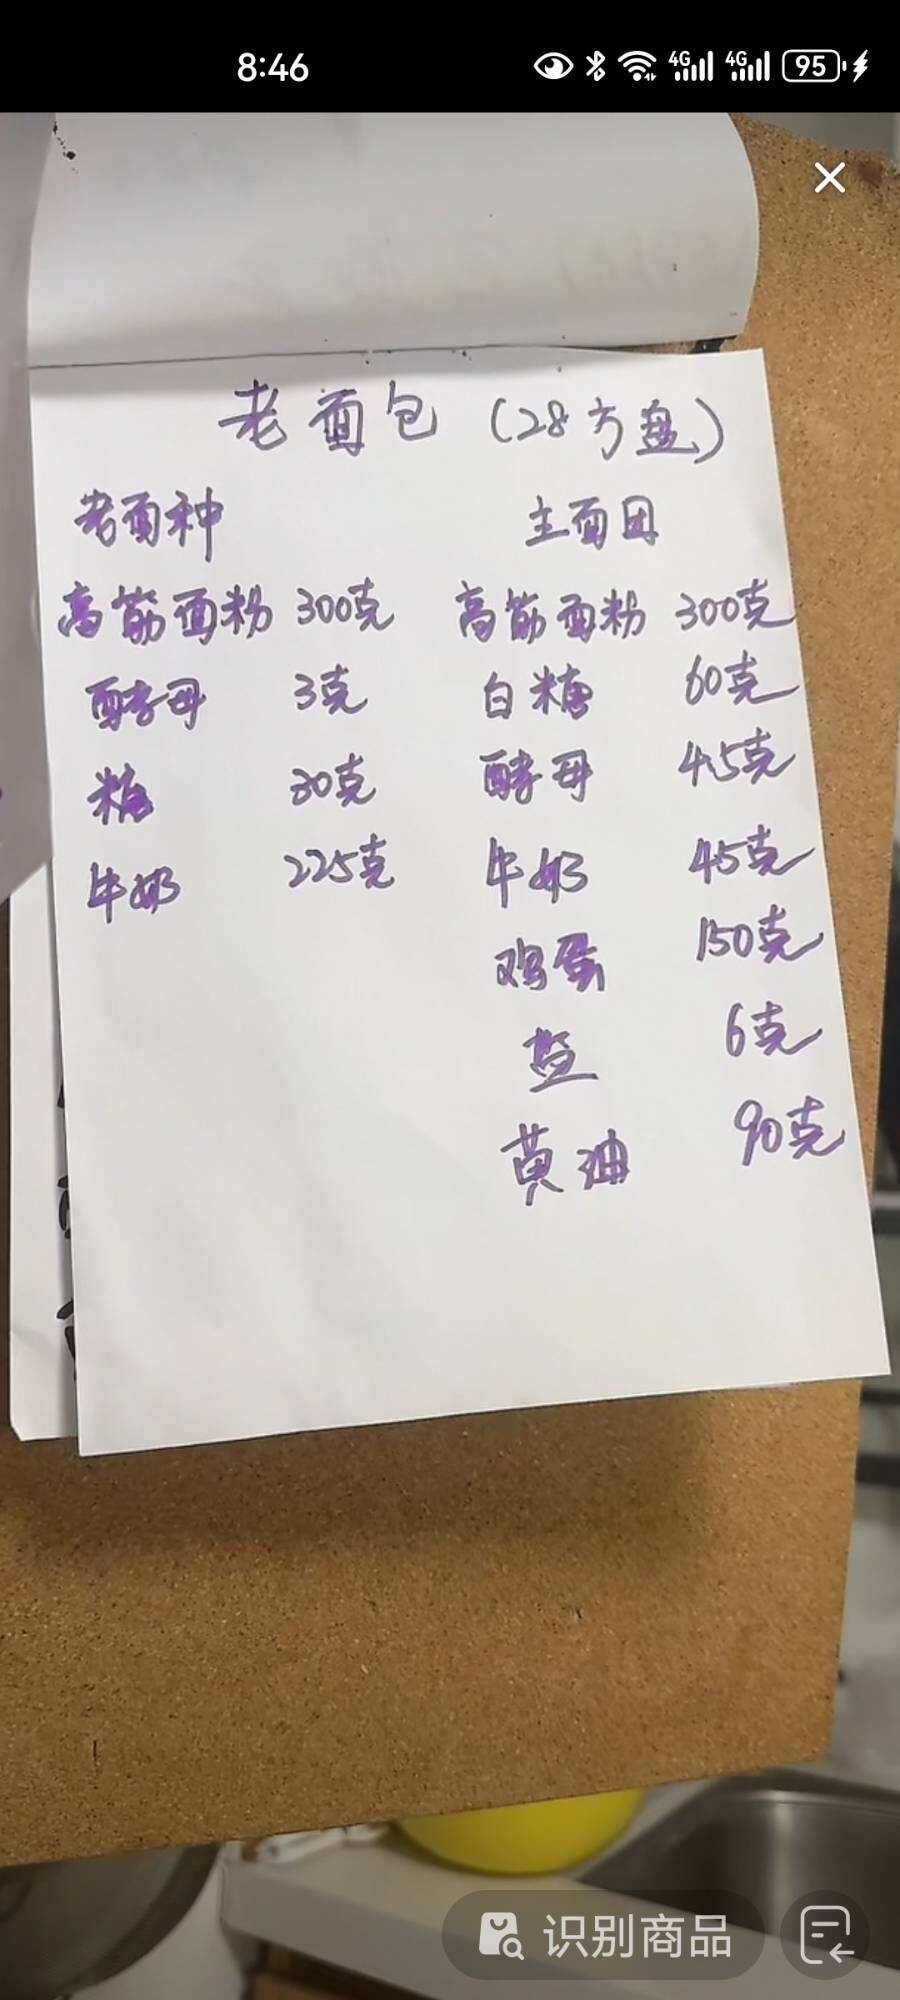 8:46
4G 4G 95
老面包（28方盘）
老面种
高筋面粉 300克
酵母 3克
糖 30克
牛奶 225克
主面团
高筋面粉 300克
白糖 60克
酵母 4.5克
牛奶 45克
鸡蛋 150克
盐 6克
黄油 90克
识别商品